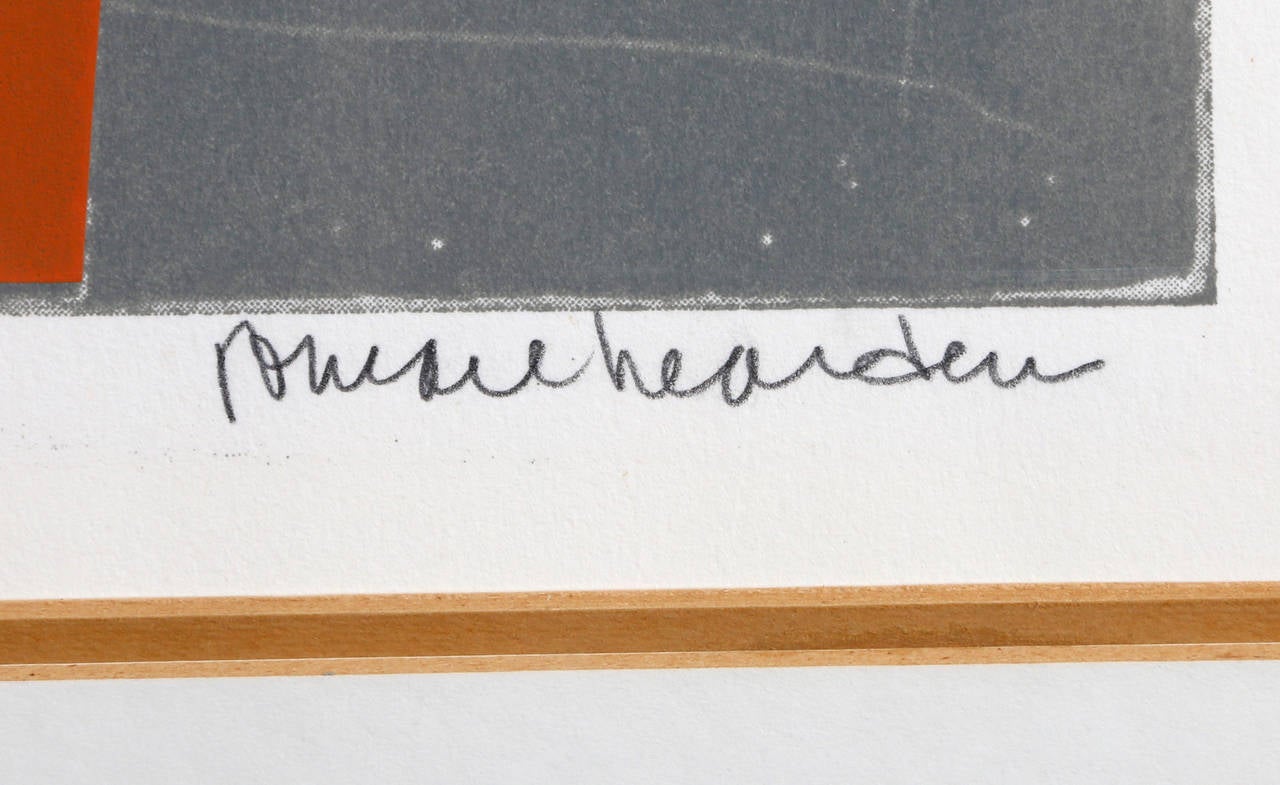 romare bearden